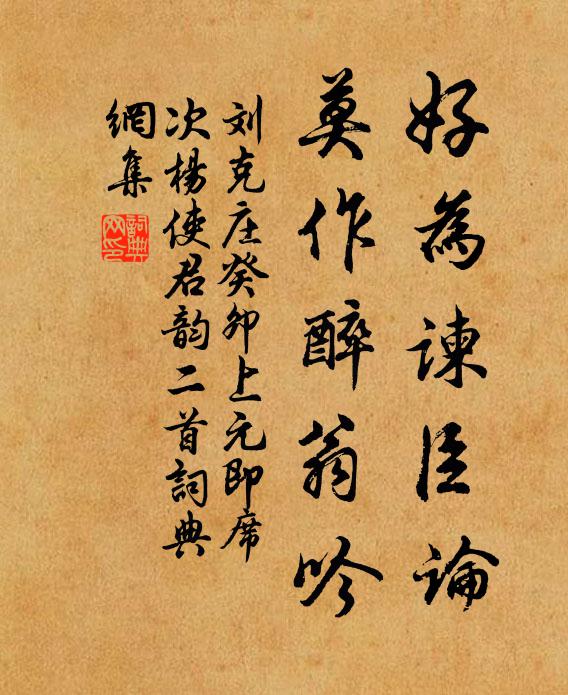 好為諫臣論
莫作醉翁吟
刘克庄癸卯上元即席
次楊使君韵二首詞典
網集
詞典網印